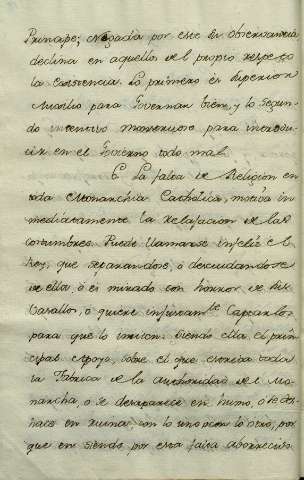 Principe; Negada por este la observancia
declina en aquellos de el propio respeto
la Consistencia. Lo primero es superior
Auxilio para Governar bien, y lo segun-
do incentivo monstruoso para introdu-
cir en el Govierno todo mal.
6. La falta de Religion en
toda Monarchia Catholica, motiva in
mediatamente la relajacion de las
costumbres. Puede llamarse infeliz el
Rey, que separandose, ó descuidandose
de ella, ó es mirado con horror de sus
Vasallos, ó quiere injustam.te
para que lo imiten. Siendo ella, el prin-
cipal Apoyo, sobre el que estriva toda
la Fabrica de la Authoridad de el Mo-
narcha, ó se desaparece en humo, ó se des-
hace en ruina, con lo uno ó con lo otro; por
que en siendo por esta falta aborrecido